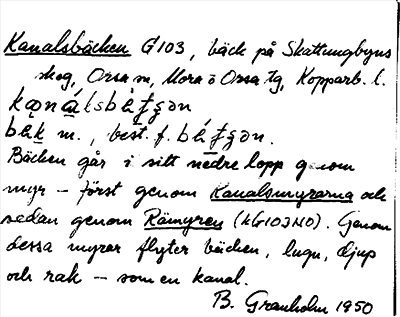 Kanalsbäcken G103, bäck på Skattungbyns
skog, Orsa sn, Mora o Orsa tg, Kopparb. l.
bäk m., best. f.
Bäcken går i sitt nedre lopp genom
myr – först genom Kanalsmyrarna och
sedan genom Rämyren (kG103NO). Genom
dessa myrar flyter bäcken, lugn, djup
och rak – som en kanal.
B. Granholm 1950